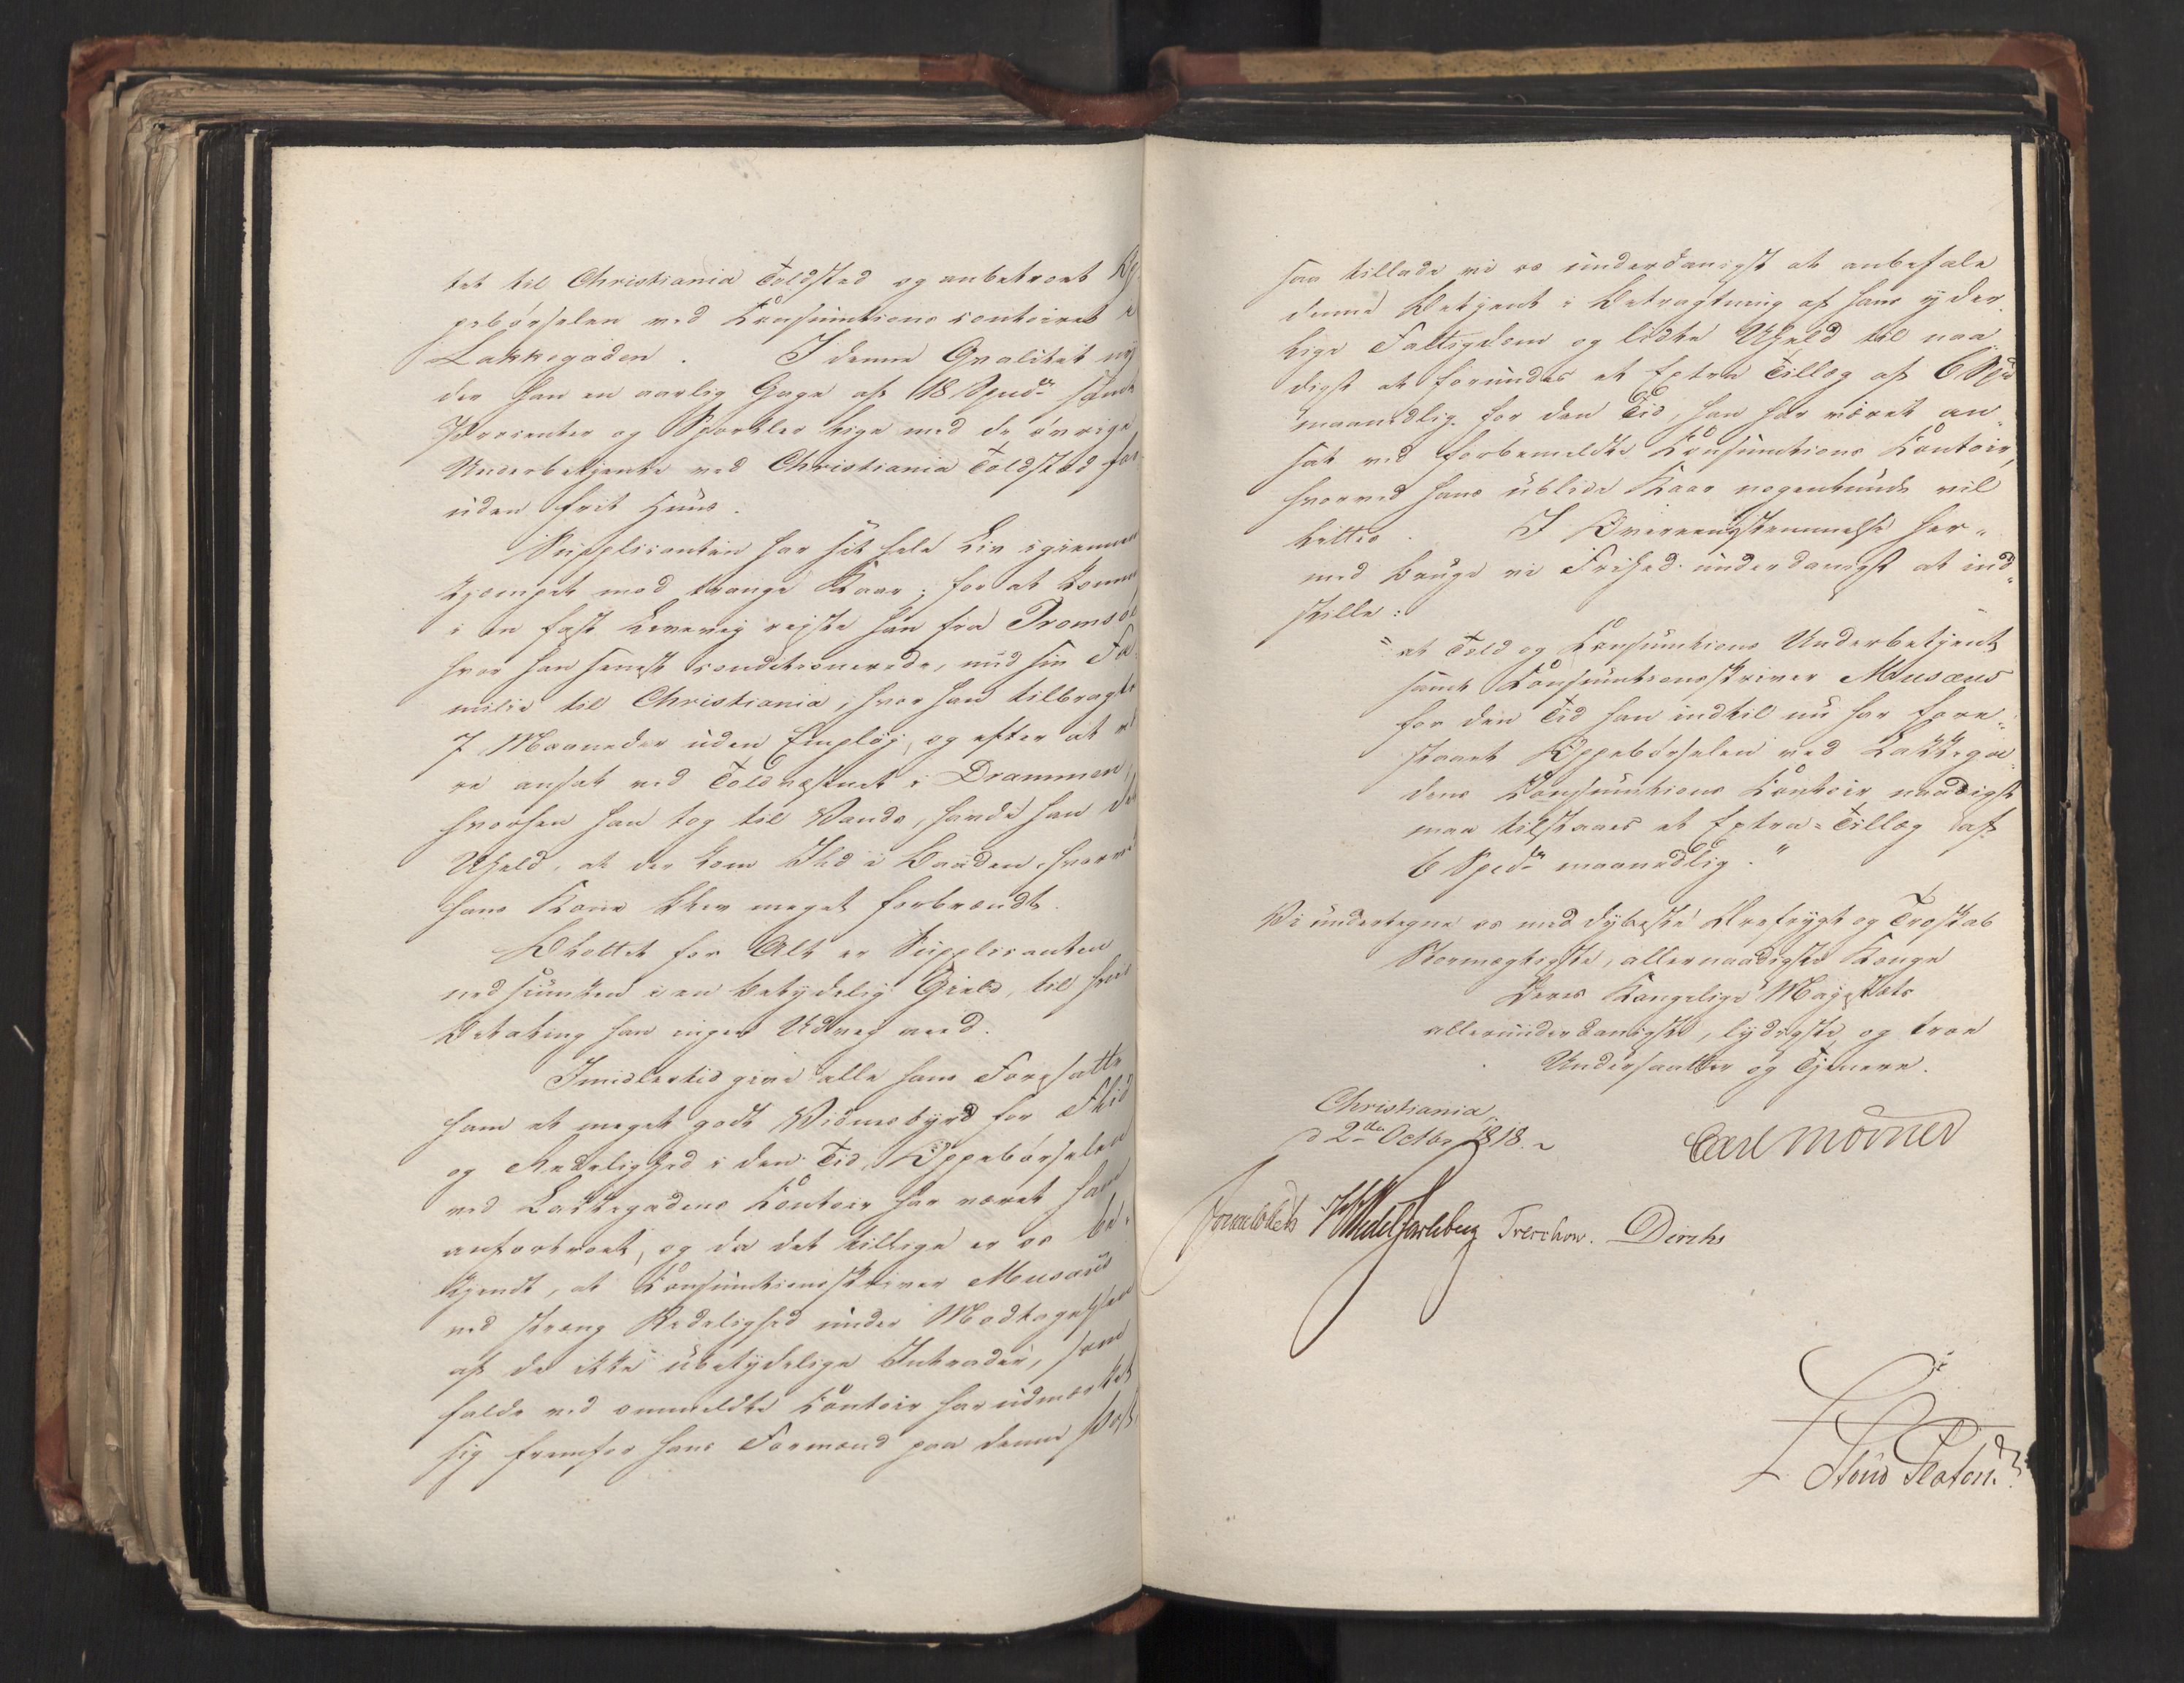 tet til Christiania Toldsted og anbetroet Op-
pebørselen ved Consumtions contoiret i
Lakkegaden. I denne Qvalitet ny-
der han en aarlig Gage af 18 Spedr samt
Procenter og Sportler lige med de øvrige
Underbetjente ved Christiania Toldsted for-
uden frit Huus.
Supplicanten har sit hele Liv igiennem
kjæmpet med trange Kaar; for at komme
i en fast Levevej rejste han fra Tromsøe
hvor han senest conditionerede, med sin Fa-
milie til Christiania, hvor han tilbragte
7 Maaneder uden Employ, og efter at væ-
re ansat ved Toldvæsenet i Drammen,
hvorhen han tog til Vands, havde han det
Uheld, at der kom Ild i Baaden, hvorved
hans Kone blev meget forbrændt.
Blottet for Alt er Supplicanten
nedsunken i en betydelig Gield, til hvis
Betaling han ingen Udvej veed.
Imidlertid give alle hans Foresatte
ham et meget godt Vidnesbyrd for Flid
og Redelighed i den Tid, Oppebørselen
ved Lakkegadens Contoir har været ham
anfortroet, og da det tillige er os be-
kjendt, at Consumtionsskriver Musæus
ved streng Redelighed under Modtagelsen
af de ikke ubetydelige Intrader, som
falde ved ommeldte Contoir har udmærket
sig fremfor hans Formænd paa denne Post,
saa tillade vi os underdanigst at anbefale
denne Betjent i Betragtning af hans yder-
lige Fattigdom og lidte Uheld til naa-
digst at forundes et Extra Tillæg af 6 Spd
maanedlig for den Tid, han har været an-
sat ved forbemeldte Consumtions Contoir,
hvorved hans usle Kaar nogenlunde vil
lettes. I Overeensstemmelse her-
med bruge vi Frihed underdanigst at ind-
stille:
"at Told og Consumtions Underbetjent
samt Consumtionsskriver Musæus
for den Tid han indtil nu har fore-
staaet Oppebørselen ved Lakkega-
dens Consumtions Contoir naadigst
maa tilstaaes et Extra-Tillæg af
6 Spedr maanedlig."
Vi undertegne os med dybeste Ærefrygt og Troskab
Stormægtigste, allernaadigste Konge
Deres Kongelige Majestæts
allerunderdanigste, lydigste og troe
Undersaatter og Tjenere.
Christiania
d 2den Octbr 1818.
Carl Mörner
Sommerhielm HWedelJarlsberg Treschow. Diriks